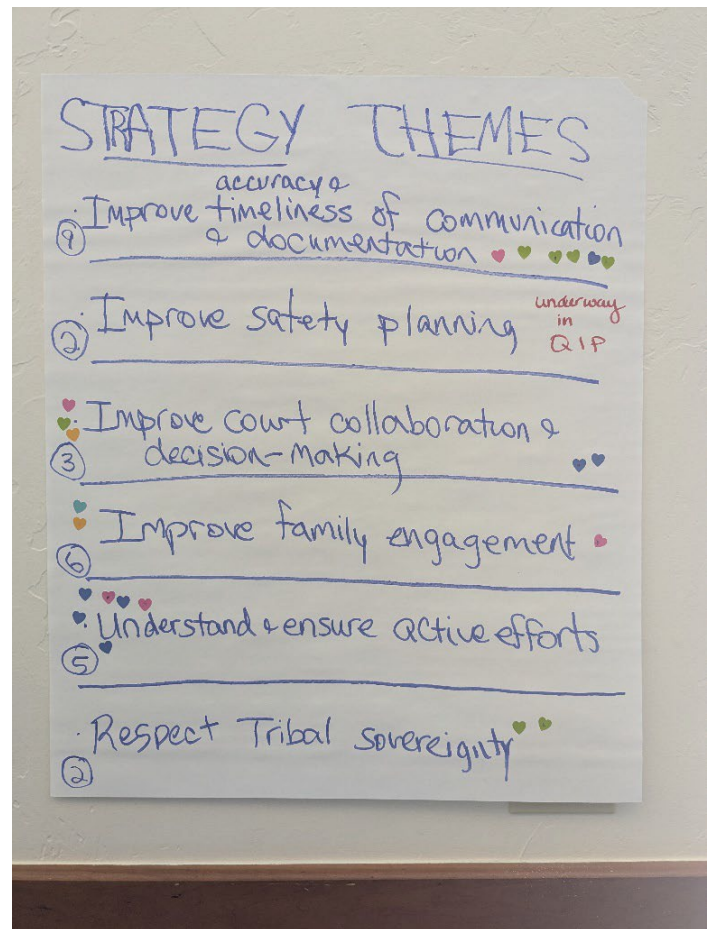 STRATEGY THEMES
accuracy &
· Improve timeliness of communication
9 & documentation
· Improve safety planning
2
underway
in
QIP
· Improve court collaboration &
3 decision-making
· Improve family engagement
6
· Understand & ensure active efforts
5
· Respect Tribal sovereignty
2